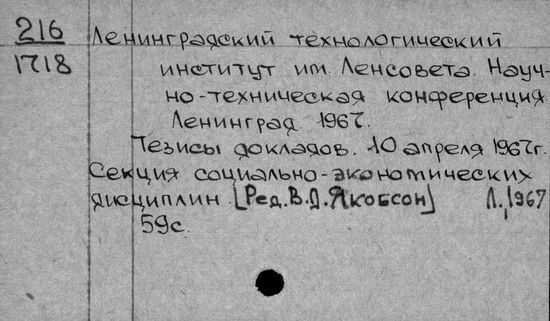 216 Ленинградский технологический
1718 институт им. Ленсовета. Науч-
но-техническая конференция.
Ленинград. 1967.
Тезисы докладов. 10 апреля 1967г.
Секция социально-экономических
дисциплин. [Ред. В.Д. Якобсон] Л., 1967
59с.